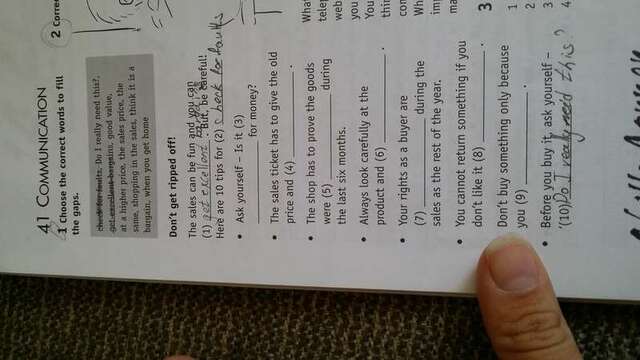 41 COMMUNICATION
1 Choose the correct words to fill
the gaps.
check for faults, Do I really need this?,
get excellent bargains, good value,
at a higher price, the sales price, the
same, shopping in the sales, think it is a
bargain, when you get home
Don't get ripped off!
The sales can be fun and you can
(1) get excellent But, be careful!
Here are 10 tips for (2) check for faults
• Ask yourself – Is it (3)
for money?
• The sales ticket has to give the old
price and (4) .
• The shop has to prove the goods
were (5) during
the last six months.
• Always look carefully at the
product and (6) .
• Your rights as a buyer are
(7) during the
sales as the rest of the year.
• You cannot return something if you
don't like it (8) .
• Don't buy something only because
you (9) .
• Before you buy it, ask yourself –
'(10) Do I really need this?
2 Corre
What
tele
web
you
You
thin
con
Wh
im
ma
3
1
2
3
4